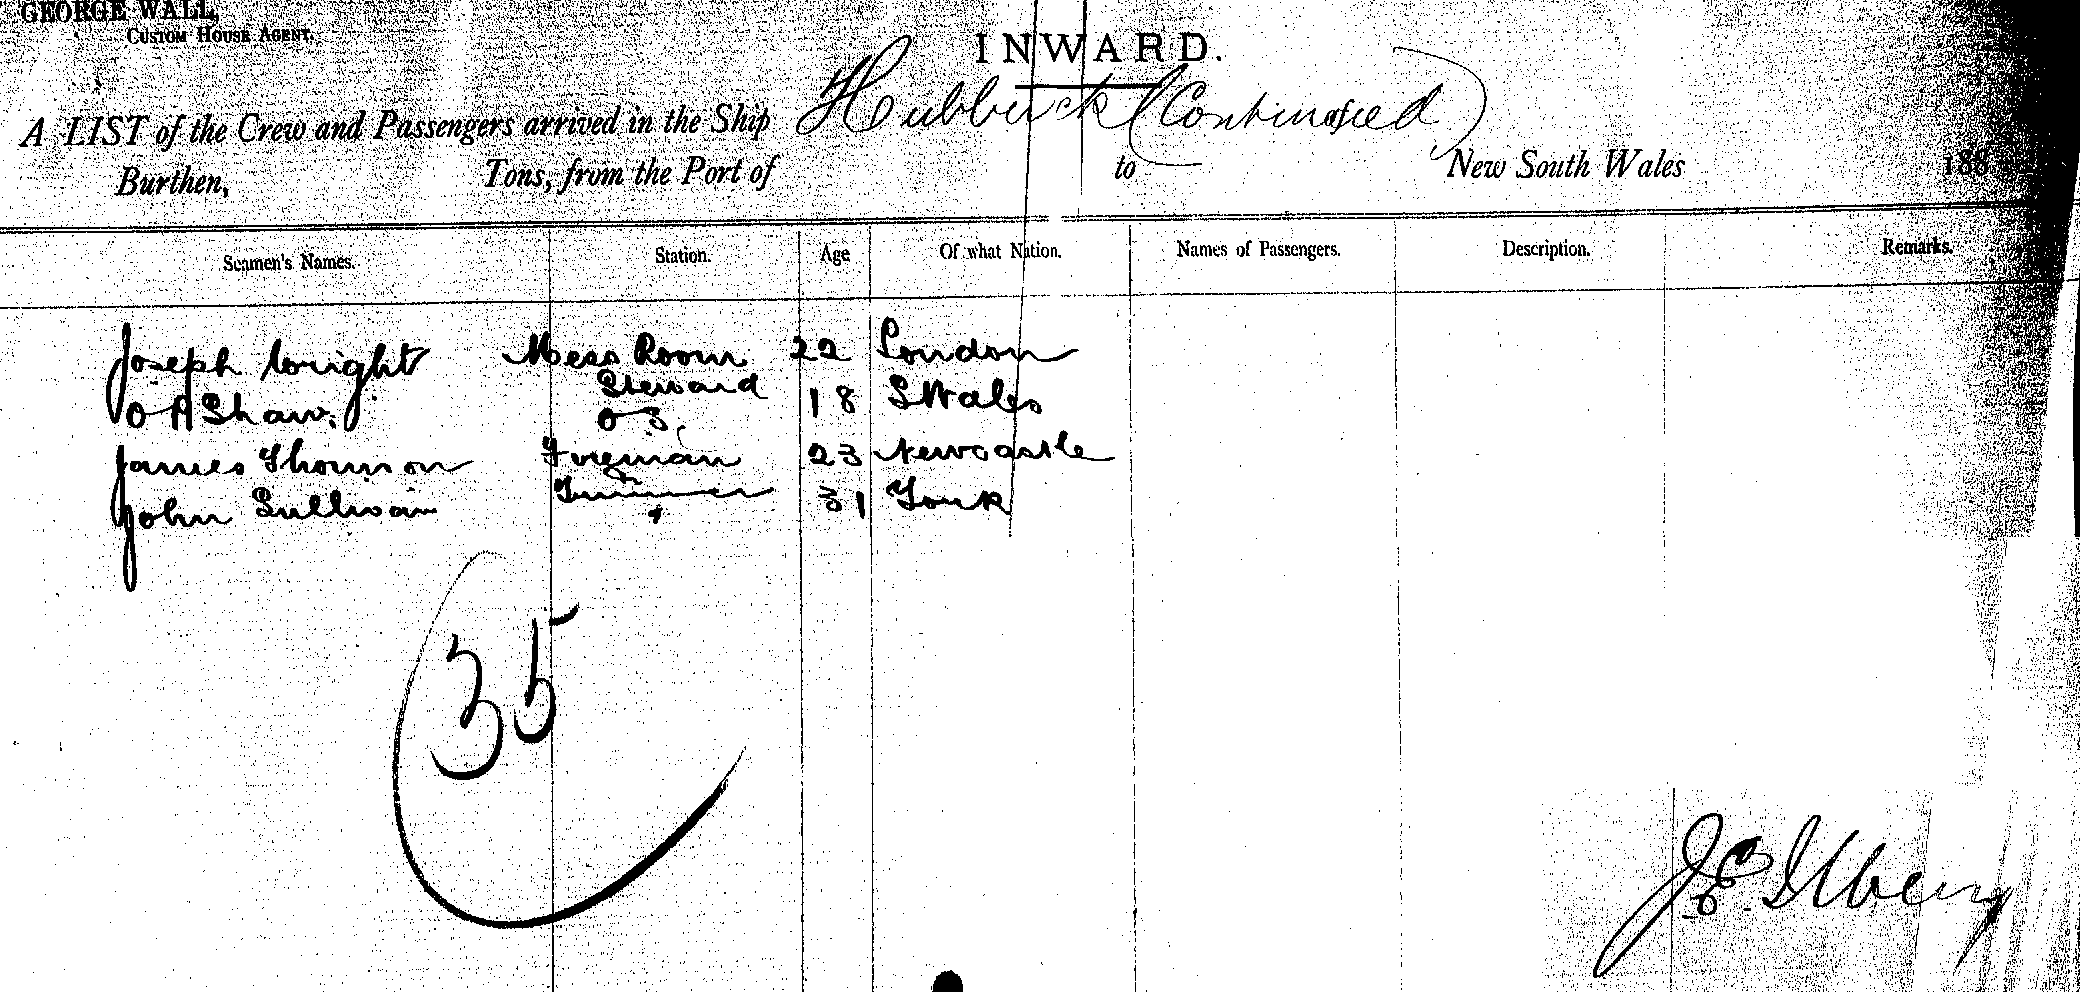 GEORGE WALL,
CUSTOM HOUSE AGENT.
INWARD.
A LIST of the Crew and Passengers arrived in the Ship Hubbuck (Continued)
Burthen, Tons, from the Port of to New South Wales 188
Seamen's Names. Station. Age Of what Nation. Names of Passengers. Description. Remarks.
Joseph Wright Mess Room 22 London
Steward
O A Shaw. O S. 18 S Wales
James Thomson Fireman 23 Newcastle
John Sullivan Trimmer 31 York
35